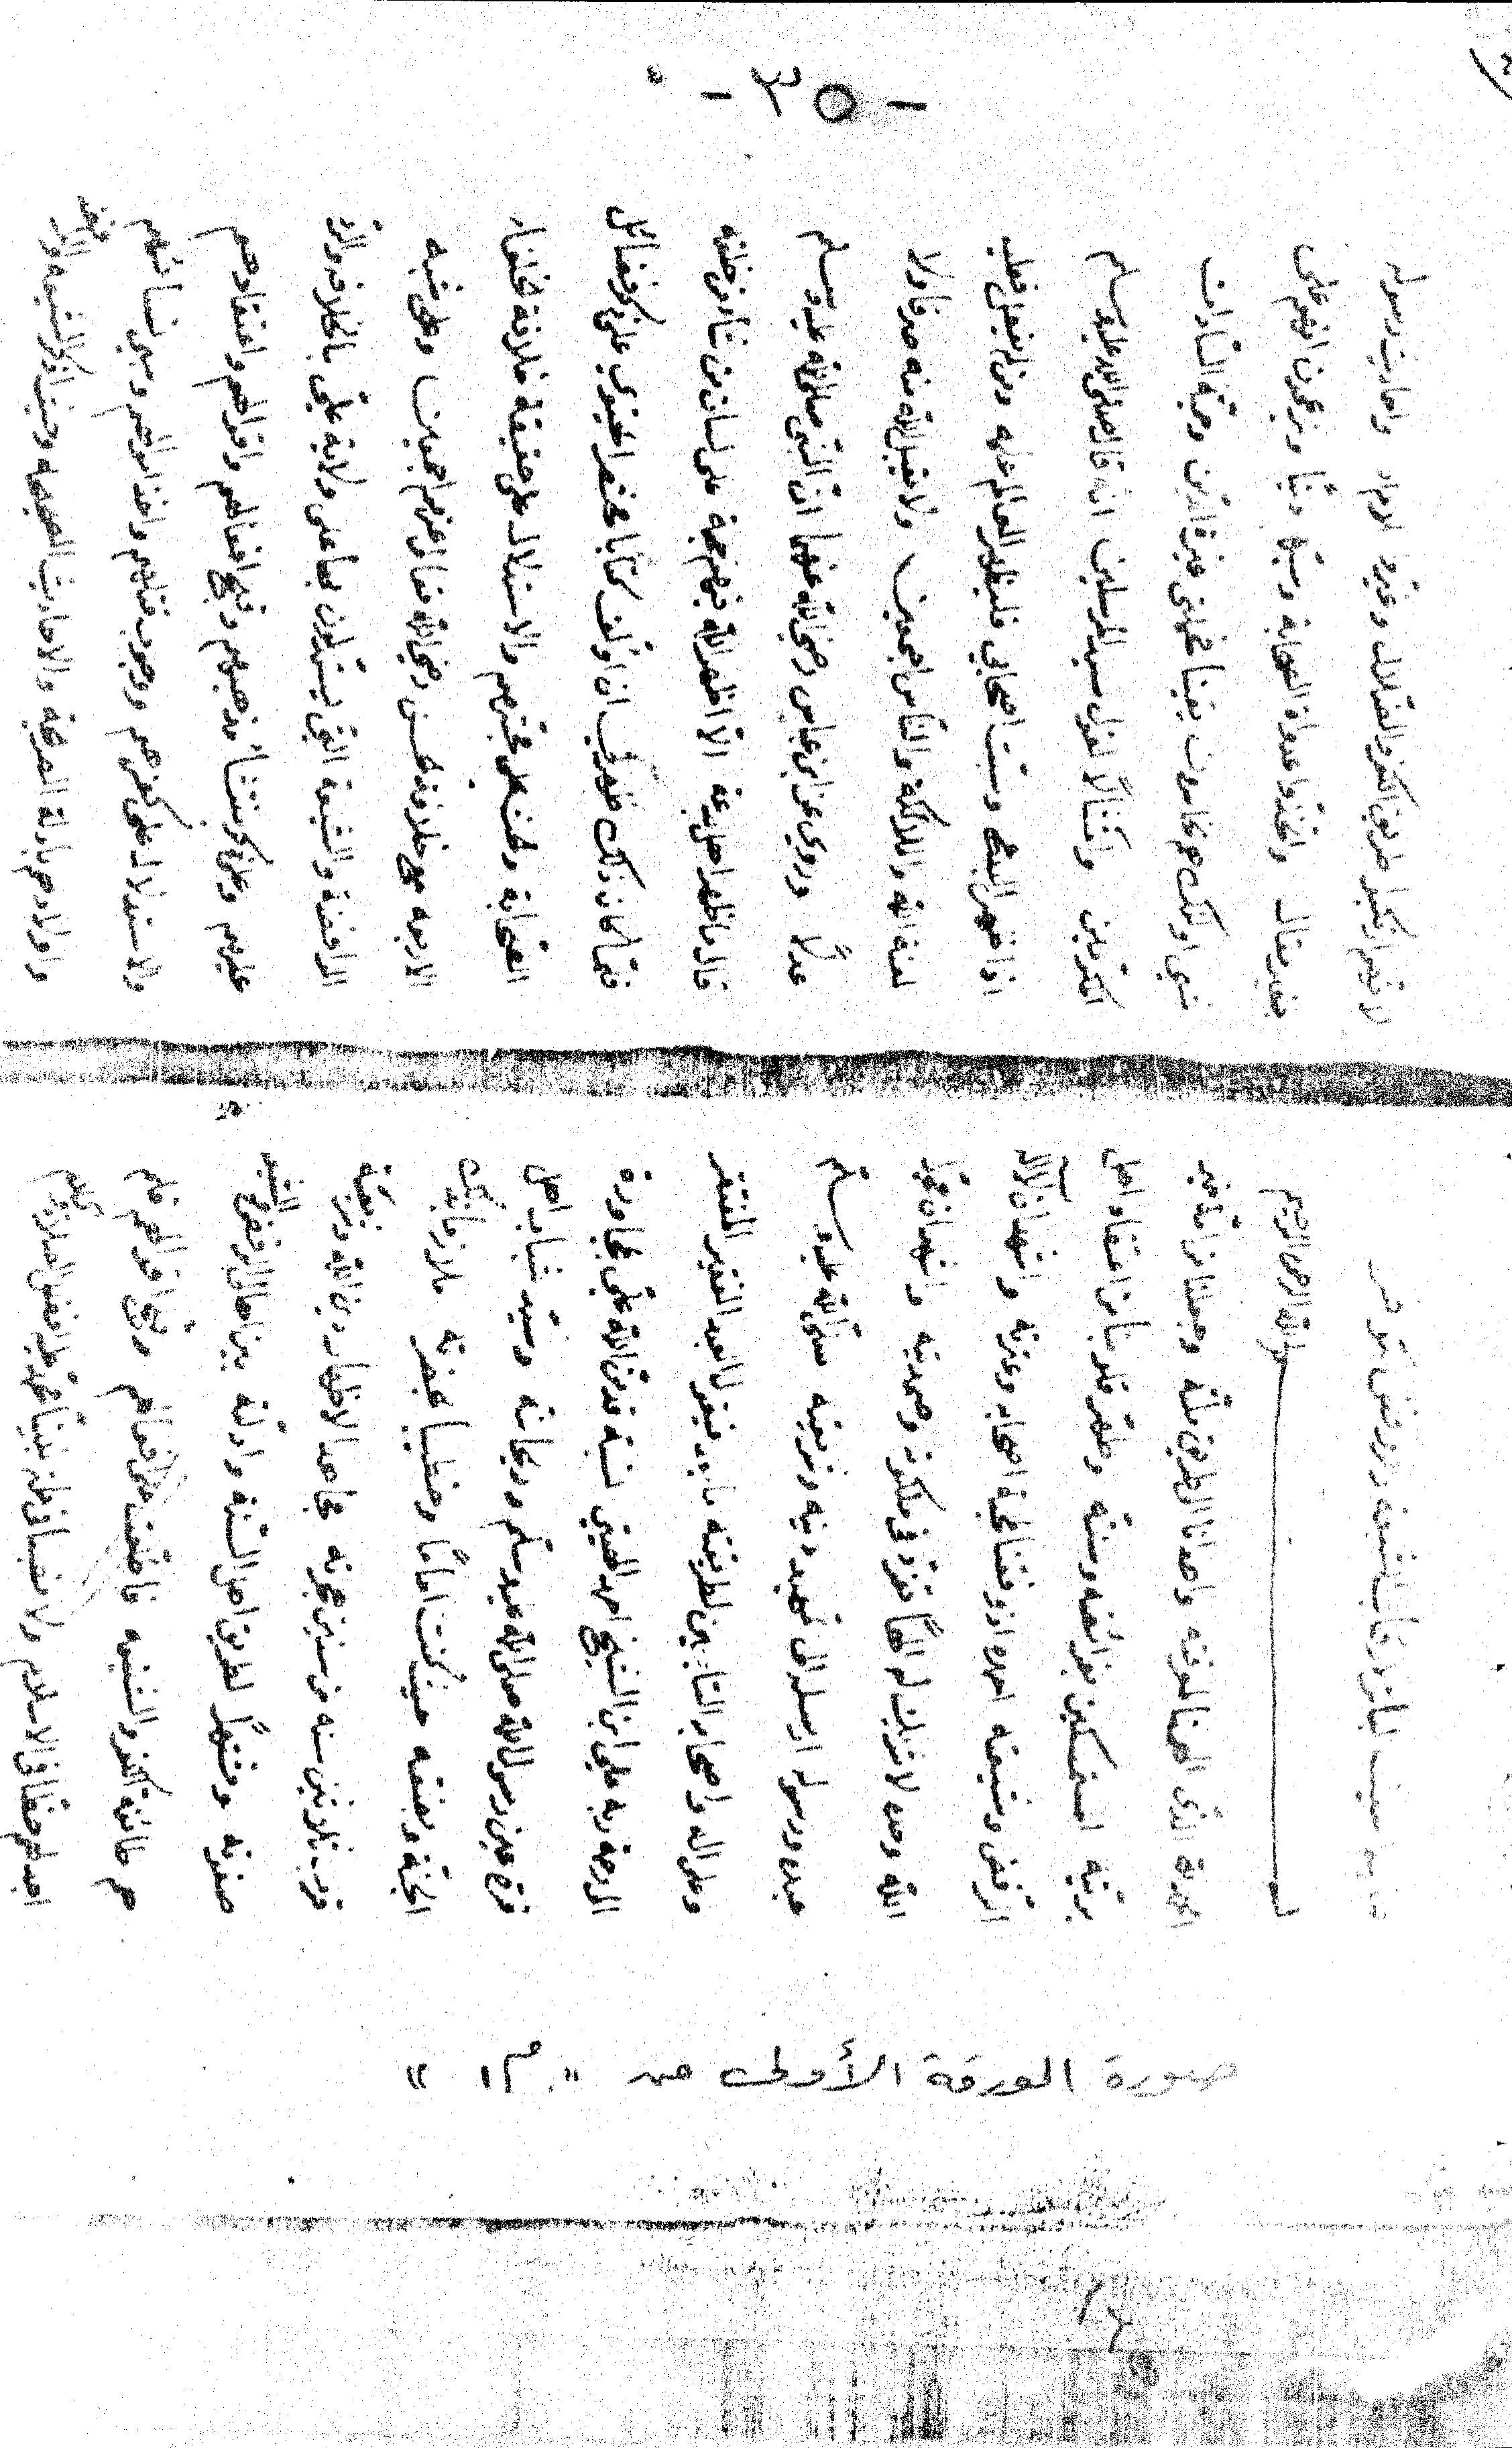 - ٣٥ -
سيف الباتر لرقاب الشيعة والرافض
بسم الله الرحمن الرحيم
الحمد لله الذي لمعرفته وهدانا الطريق ملته وجعلنا من امة خير
بريته المتمسكين بفرائضه وسنته وطهر قلوبنا من اعتقاد اهل
الرفض وشيعته احمده اذ وفقنا لمحبة اصحابه وعترته واشهد ان لا اله الا
الله وحده لا شريك له الهًا تفرد في ملكوته وصمديته واشهد ان محمد
عبده ورسوله ارسله الى تمهيد دينه وشريعته صلى الله عليه وسلم
وعلى اله واصحابه التابعين لطريقته وبعد فيقول العبد الفقير المفتقر
الى رحمة ربه علي ابن الشيخ احمد الهيتي لنسبته قد من الله علي بمجاورة
قرة عين رسول الله صلى الله عليه وسلم وريحانته وسيد شباب اهل
الجنة وبضعته حيث كنت امامًا وخطيبا بحضرته ملازما بذلك
قريب ثلاثين سنه من سنين هجرته مجاهد الاظهار دين الله وشريعته
صفوته ومشتهرًا لطريق اهل السنة وادلته بين اهالي الرفض والشيعة
هم طائفة الكفر والشنيعه فاطلعت على افعالهم وقبح اقوالهم فلم
اجد لهم حظا في الاسلام ولا نصيبا في ملة نبينا محمد عليه افضل الصلاة والسلام
لانهم ارتكبوا طريق الكفر والضلال وغيروا واحاديث رسوله
بغير مقال واتخذوا عداوة الصحابة وسبهم دينًا ويزعمون انهم على
شيئ اولئك هم يقينا
لقول سيد المرسلين انه قال صلى الله عليه وسلم
اذا ظهر البدع وسبت اصحابي فليظهر العالم علمه ومن لم يفعل فعليه
لعنة الله والملائكة والناس اجمعين ولا يقبل الله منه صرفا ولا
عدلًا وروي عن ابن عباس رضي الله عنهما ان النبي صلى الله عليه وسلم
قال ما ظهر اهل بدعة الا اظهر الله فيهم حجة على لسان من شاء من خلقه
فلما كان ذلك ان اولف كتابا مختصرا يحتوي على ذكر فضائل
الصحابة وعلى محبتهم والاستدلال على حقيقة خلافة الخلفاء
الاربعه مع خلافة الحسن رضي الله تعالى عنهم اجمعين وعلى شبه
الرافضة والشيعة التي يستدلون بها على ولاية علي بالخلافة والرد
عليهم وعلى ذكر منشأ مذهبهم وقبح افعالهم واقوالهم واعتقادهم
والاستدلال على كفرهم ووجوب قتالهم واخذ اموالهم وسبي نسائهم
واولادهم بادلة المرضية والاحاديث الصحيحه وحيث اذكر الشيعه
صورة الورقة الأولى من " م١ "